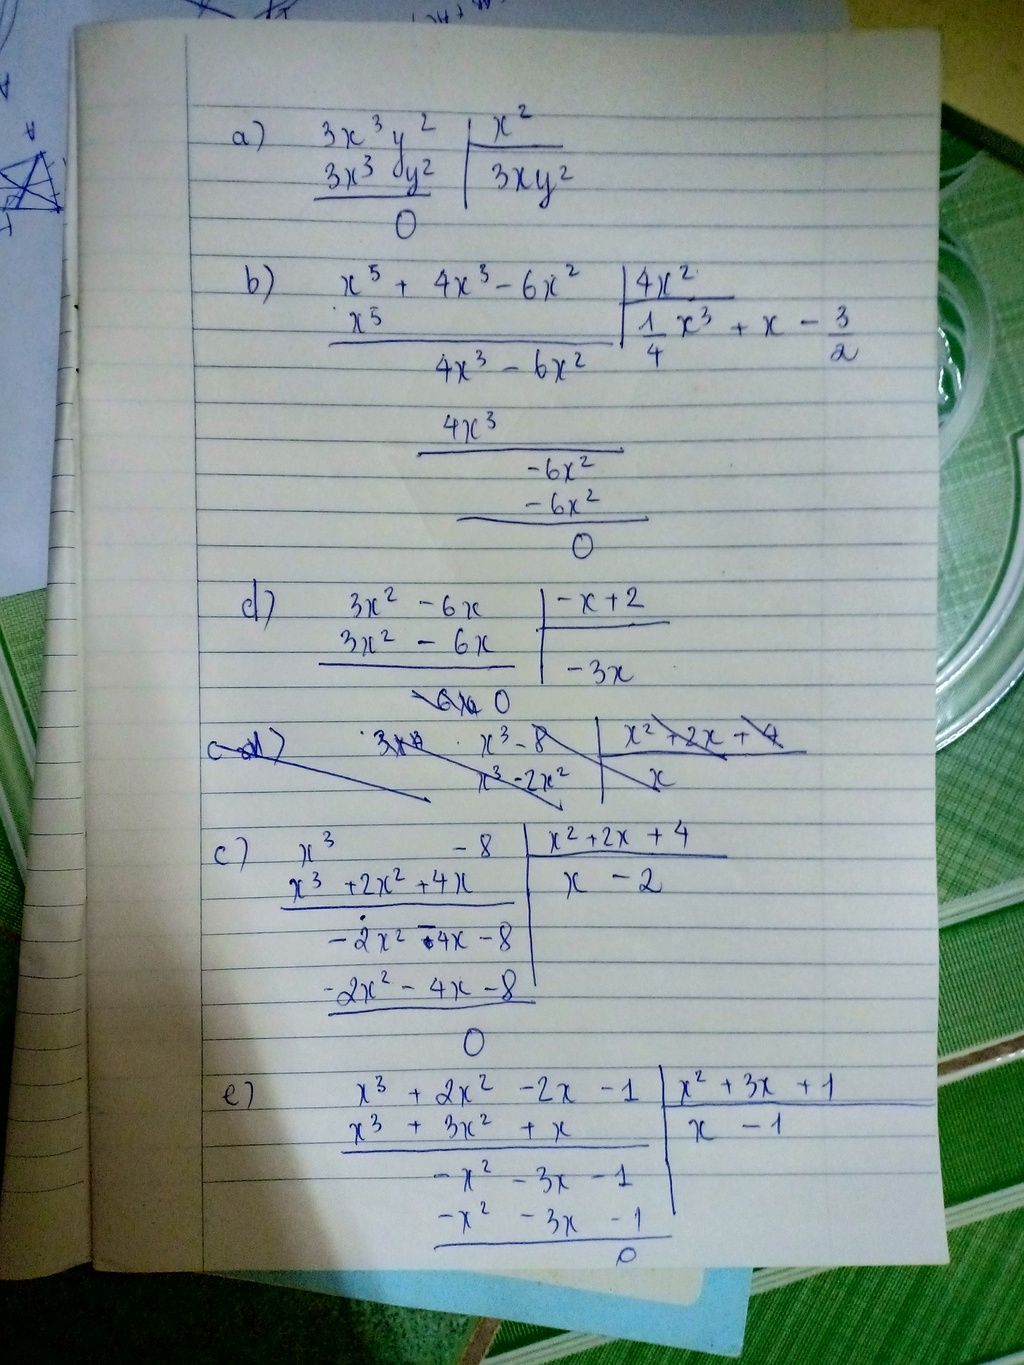 a) 3x³y² | x²
3x³ y² | 3xy²
0
b) x⁵ + 4x³ - 6x² | 4x²
x⁵ | 1/4 x³ + x - 3/2
4x³ - 6x²
4x³
-6x²
-6x²
0
d) 3x² - 6x | -x + 2
3x² - 6x | -3x
0
x³ - 8 | x² + 2x + 4
x³ - 2x² | x
c) x³ - 8 | x² + 2x + 4
x³ + 2x² + 4x | x - 2
- 2x² - 4x - 8
- 2x² - 4x - 8
0
e) x³ + 2x² - 2x - 1 | x² + 3x + 1
x³ + 3x² + x | x - 1
- x² - 3x - 1
- x² - 3x - 1
0